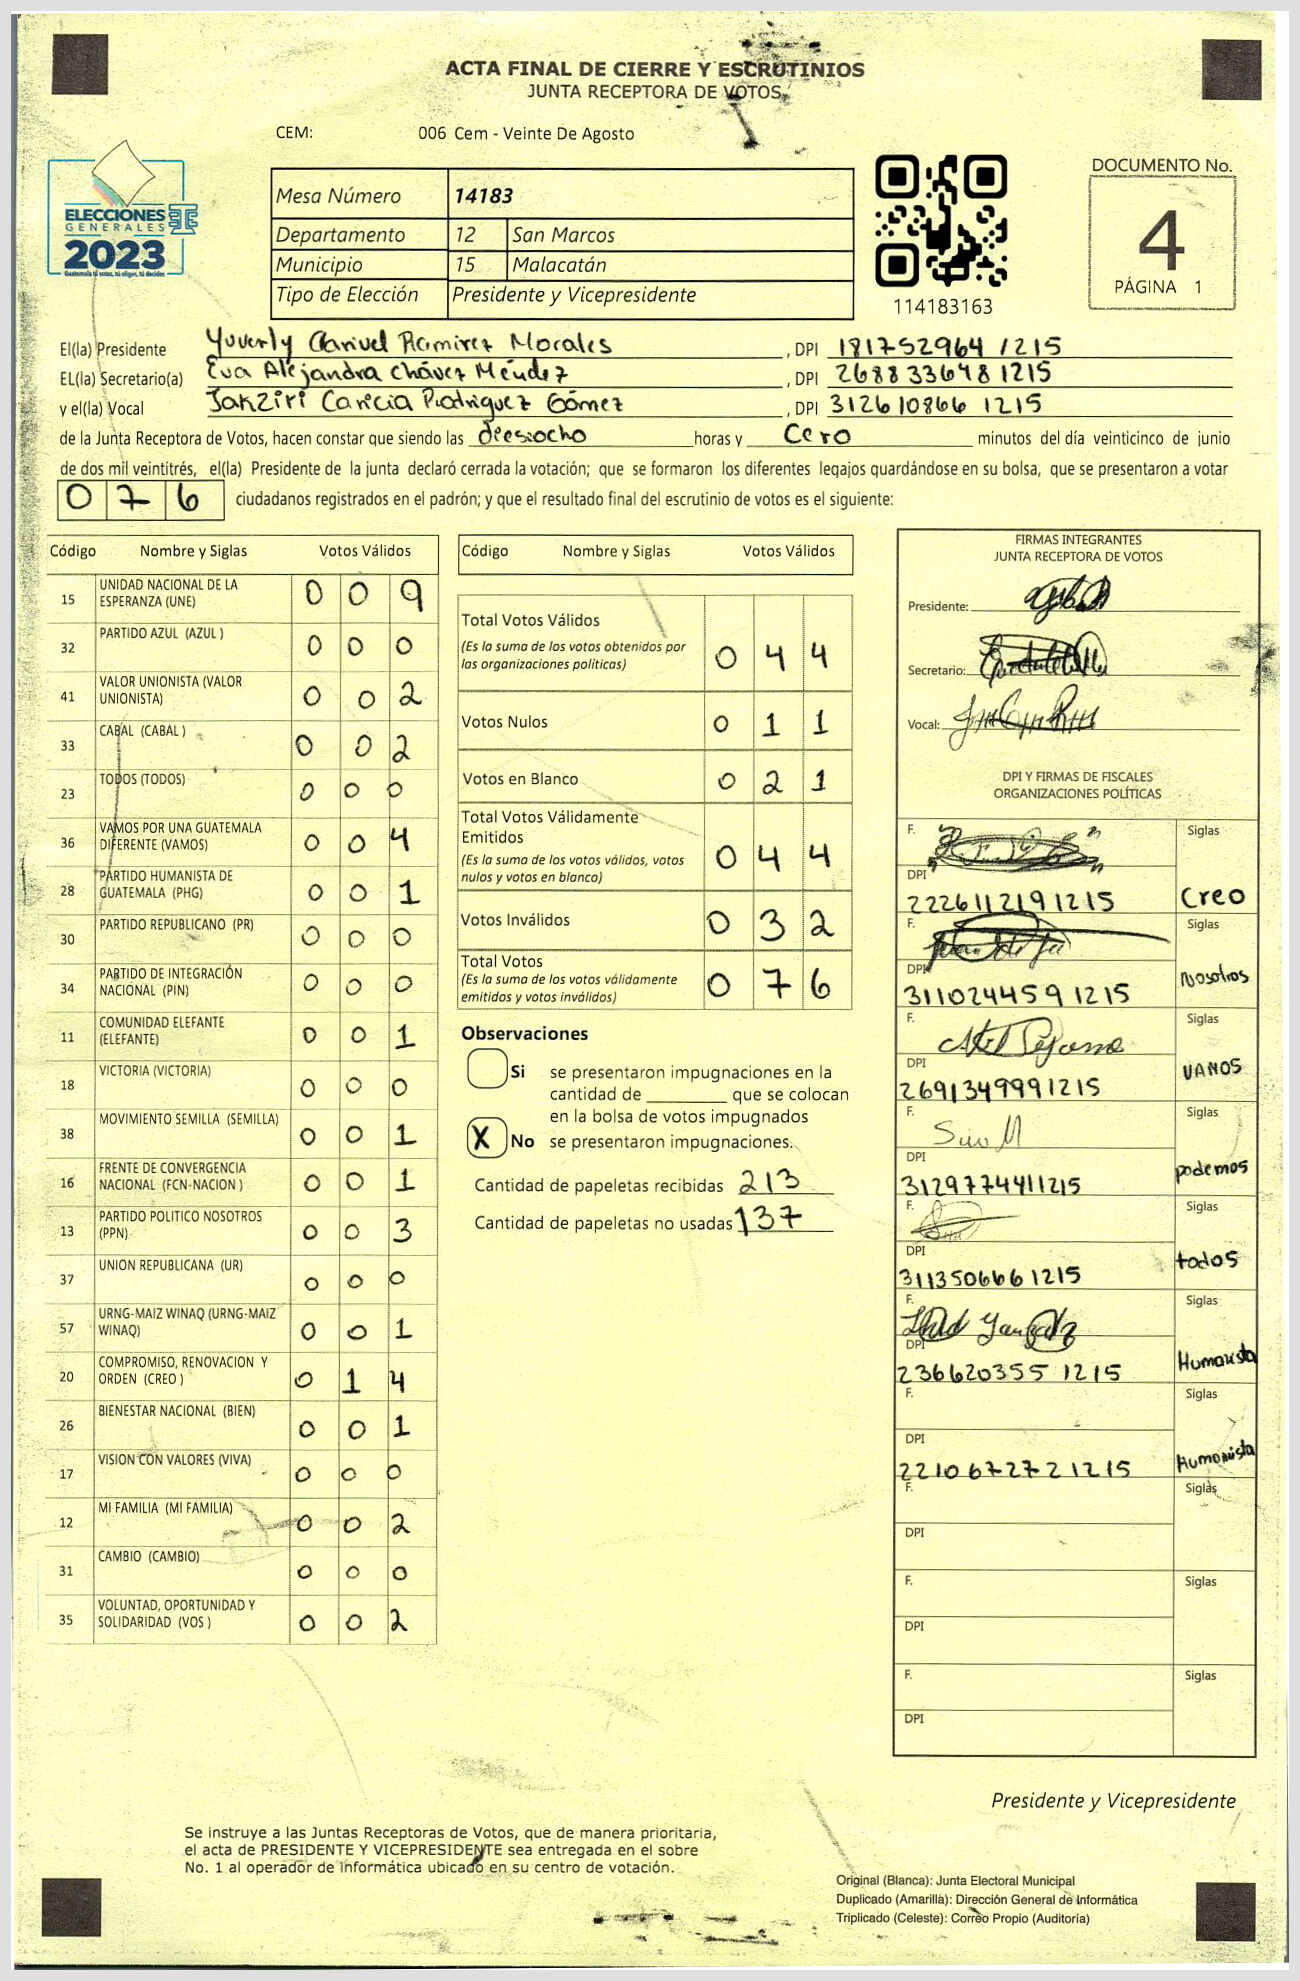 ACTA FINAL DE CIERRE Y ESCRUTINIOS
JUNTA RECEPTORA DE VOTOS
CEM: 006 Cem - Veinte De Agosto
ELECCIONES
GENERALES
2023
Guatemala tú votas, tú eliges, tú decides
Mesa Número 14183
Departamento 12 San Marcos
Municipio 15 Malacatán
Tipo de Elección Presidente y Vicepresidente
114183163
DOCUMENTO No.
4
PÁGINA 1
El(la) Presidente Yuverly Clarivel Ramirez Morales, DPI 181752964 1215
EL(la) Secretario(a) Eva Alejandra Chávez Méndez, DPI 268833648 1215
y el(la) Vocal Jakziri Caricia Rodriguez Gómez, DPI 312610866 1215
de la Junta Receptora de Votos, hacen constar que siendo las deesiocho horas y Cero minutos del día veinticinco de junio
de dos mil veintitrés, el(la) Presidente de la junta declaró cerrada la votación; que se formaron los diferentes legajos quardándose en su bolsa, que se presentaron a votar
0 7 6 ciudadanos registrados en el padrón; y que el resultado final del escrutinio de votos es el siguiente:
Código Nombre y Siglas Votos Válidos
15 UNIDAD NACIONAL DE LA ESPERANZA (UNE) 0 0 9
32 PARTIDO AZUL (AZUL ) 0 0 0
41 VALOR UNIONISTA (VALOR UNIONISTA) 0 0 2
33 CABAL (CABAL ) 0 0 2
23 TODOS (TODOS) 0 0 0
36 VAMOS POR UNA GUATEMALA DIFERENTE (VAMOS) 0 0 4
28 PARTIDO HUMANISTA DE GUATEMALA (PHG) 0 0 1
30 PARTIDO REPUBLICANO (PR) 0 0 0
34 PARTIDO DE INTEGRACIÓN NACIONAL (PIN) 0 0 0
11 COMUNIDAD ELEFANTE (ELEFANTE) 0 0 1
18 VICTORIA (VICTORIA) 0 0 0
38 MOVIMIENTO SEMILLA (SEMILLA) 0 0 1
16 FRENTE DE CONVERGENCIA NACIONAL (FCN-NACION ) 0 0 1
13 PARTIDO POLITICO NOSOTROS (PPN) 0 0 3
37 UNION REPUBLICANA (UR) 0 0 0
57 URNG-MAIZ WINAQ (URNG-MAIZ WINAQ) 0 0 1
20 COMPROMISO, RENOVACION Y ORDEN (CREO ) 0 1 4
26 BIENESTAR NACIONAL (BIEN) 0 0 1
17 VISION CON VALORES (VIVA) 0 0 0
12 MI FAMILIA (MI FAMILIA) 0 0 2
31 CAMBIO (CAMBIO) 0 0 0
35 VOLUNTAD, OPORTUNIDAD Y SOLIDARIDAD (VOS ) 0 0 2
Código Nombre y Siglas Votos Válidos
Total Votos Válidos
(Es la suma de los votos obtenidos por
las organizaciones políticas) 0 4 4
Votos Nulos 0 1 1
Votos en Blanco 0 2 1
Total Votos Válidamente
Emitidos
(Es la suma de los votos válidos, votos
nulos y votos en blanco) 0 4 4
Votos Inválidos 0 3 2
Total Votos
(Es la suma de los votos válidamente
emitidos y votos inválidos) 0 7 6
Observaciones
Si se presentaron impugnaciones en la
cantidad de ________ que se colocan
en la bolsa de votos impugnados
X No se presentaron impugnaciones.
Cantidad de papeletas recibidas 213
Cantidad de papeletas no usadas 137
FIRMAS INTEGRANTES
JUNTA RECEPTORA DE VOTOS
Presidente:
Secretario:
Vocal:
DPI Y FIRMAS DE FISCALES
ORGANIZACIONES POLÍTICAS
F. Siglas
DPI
222611219 1215 Creo
F. Siglas
DPI
311024459 1215 Nosotros
F. Siglas
DPI
269134999 1215 VAMOS
F. Siglas
DPI
312977441 1215 podemos
F. Siglas
DPI
311350666 1215 todos
F. Siglas
DPI
236620355 1215 Humanista
F. Siglas
DPI
221067272 1215 Humanista
F. Siglas
DPI
F. Siglas
DPI
F. Siglas
DPI
Presidente y Vicepresidente
Se instruye a las Juntas Receptoras de Votos, que de manera prioritaria,
el acta de PRESIDENTE Y VICEPRESIDENTE sea entregada en el sobre
No. 1 al operador de informática ubicado en su centro de votación.
Original (Blanca): Junta Electoral Municipal
Duplicado (Amarilla): Dirección General de Informática
Triplicado (Celeste): Correo Propio (Auditoría)